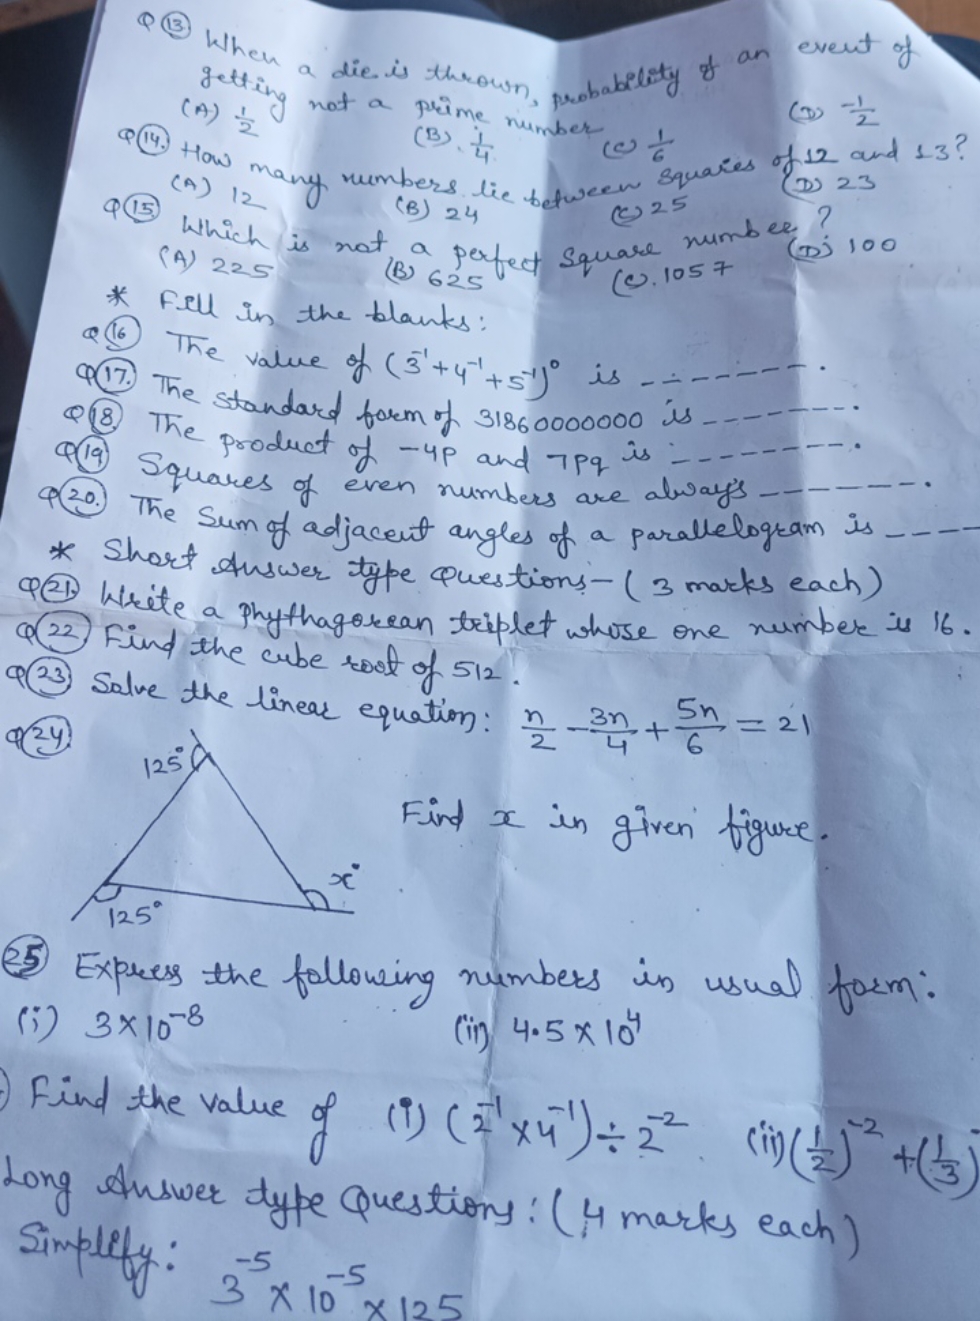 Q 13 When a die is thrown, probability of an event of
getting not a prime number
(A) 1/2 (B). 1/4 (C) 1/6 (D) -1/2
Q 14. How many numbers lie between squares of 12 and 13?
(A) 12 (B) 24 (C) 25 (D) 23
Q 15 Which is not a perfect square number?
(A) 225 (B) 625 (C). 1057 (D) 100
* Fill in the blanks:
Q 16 The value of (3⁻¹+4⁻¹+5⁻¹)⁰ is --------.
Q 17. The standard form of 31860000000 is --------.
Q 18 The product of -4p and 7pq is --------.
Q 19 Squares of even numbers are always -------.
Q 20. The Sum of adjacent angles of a parallelogram is ----
* Short Answer type Questions- (3 marks each)
Q 21) Write a phythagorean triplet whose one number is 16.
Q 22 Find the cube root of 512.
Q 23 Solve the linear equation: n/2 - 3n/4 + 5n/6 = 21
Q 24)
125°
Find x in given figure.
x°
125°
25 Express the following numbers in usual form:
(i) 3×10⁻⁸ (ii) 4.5×10⁴
Find the value of (i) (2⁻¹×4⁻¹)÷2⁻² (ii) (1/2)⁻² + (1/3)⁻
Long Answer type Questions: (4 marks each)
Simplify: 3⁻⁵ × 10⁻⁵ × 125